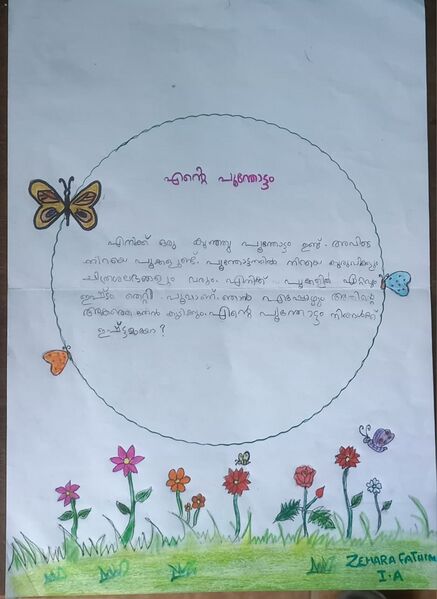 എന്റെ പൂന്തോട്ടം
എനിക്ക് ഒരു കുഞ്ഞു പൂന്തോട്ടം ഉണ്ട്. അവിടെ
നിറയെ പൂക്കളുണ്ട്. പൂന്തോട്ടത്തിൽ നിറയെ കുരുവികളും
ചിത്രശലഭങ്ങളും വരും. എനിക്ക് പൂക്കളിൽ ഏറ്റവും
ഇഷ്ടം തെറ്റി പൂവാണ്. ഞാൻ എപ്പോഴും അതിന്റെ
കുടിക്കും. എന്റെ പൂന്തോട്ടം നിങ്ങൾക്ക്
ഇഷ്ട്ടമായോ?
ZEHARA FATHIM
I.A